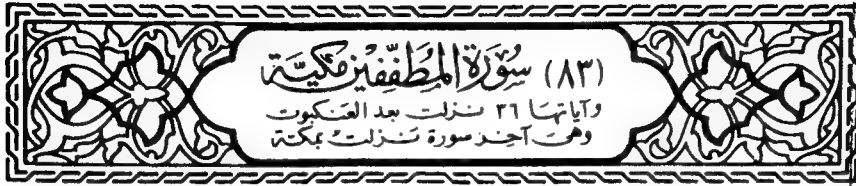 (٨٣) سُوْرَة المطَفّفِيْن مَكِّيَّة
وآياتها ٣٦ نـزلت بعد العنكبوت
وهى آخر سورة نـزلت بمكة